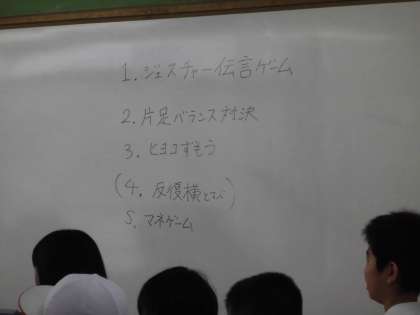 1. ジェスチャー伝言ゲーム
2. 片足バランス対決
3. ヒヨコずもう
(4. 反復横とび)
5. マネゲーム